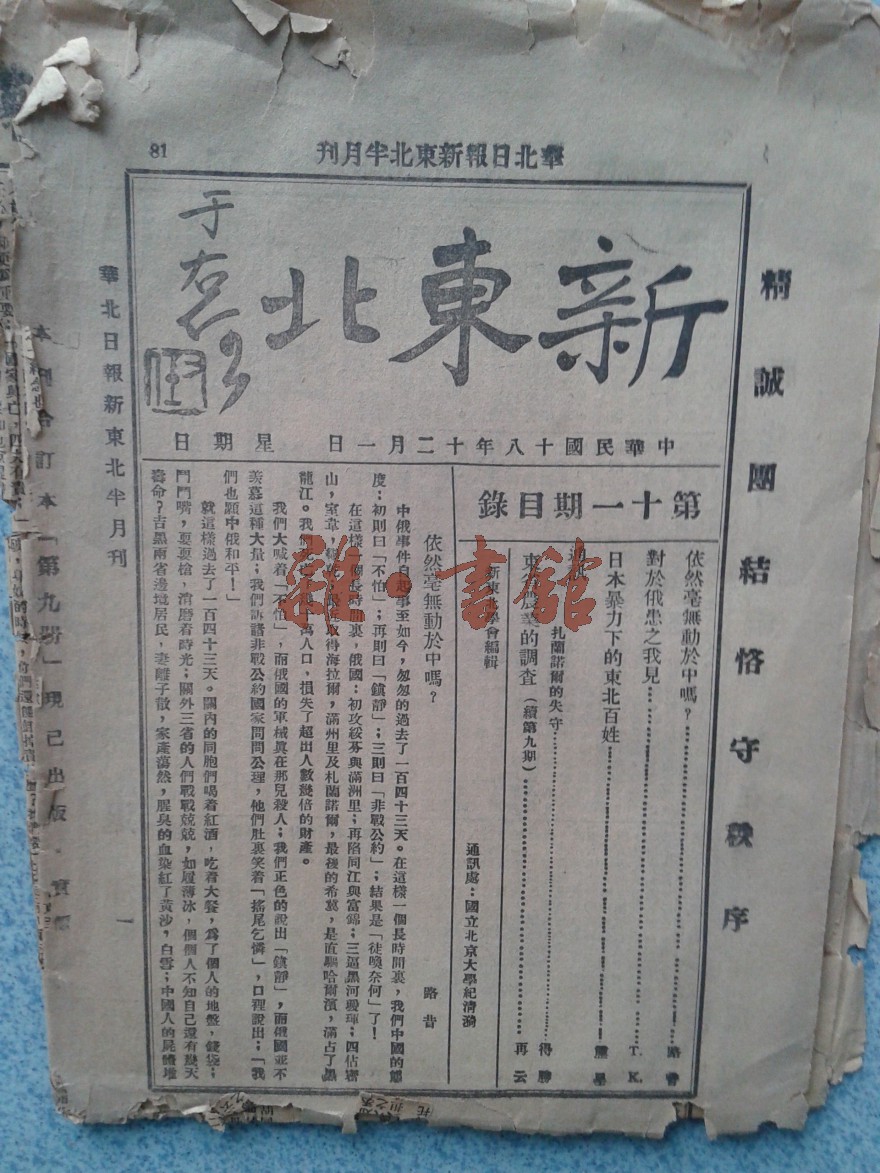 華北日報新東北半月刊
81
精誠團結恪守秩序
新東北
于右任
中華民國十八年十二月一日 星期日
第十一期目錄
依然毫無動於中嗎？……路昔
對於俄患之我見……T. K.
日本暴力下的東北百姓……
扎蘭諾爾的失守……得勝
的調查（續第九期）……再云
新東北學會編輯
通訊處：國立北京大學紀清漪
依然毫無動於中嗎？
路昔
中俄事件自起事至如今，忽忽的過去了一百四十三天。在這樣一個長時間裏，我們中國的態
度：初則曰「不怕」；再則曰「鎮靜」；三則曰「非戰公約」；結果是「徒喚奈何」了！
在這樣一個長時間裏，俄國：初攻綏芬與滿洲里；再陷同江與富錦；三逼黑河愛琿；四佔密
山，室韋，取得海拉爾，滿州里及札蘭諾爾，最後的希冀，是直驅哈爾濱，滿占了黑
龍江。我們萬人口，損失了超出人數幾倍的財產。
我們大喊着「不怕」，而俄國的軍械眞在那兒殺人；我們正色的說出「鎮靜」，而俄國並不
羨慕這種大量；我們訴諸非戰公約國家問問公理，他們肚裏笑着「搖尾乞憐」，口裡說出；「我
們也願中俄和平！」
就這樣過去了一百四十三天。關內的同胞們喝着紅酒，吃着大餐，爲了個人的地盤，錢袋；
鬥鬥嘴，耍耍槍，消磨着時光；關外三省的人們戰戰兢兢，如履薄冰，個個人不知自己還有幾天
壽命？吉黑兩省邊境居民，妻離子散，家產蕩然，腥臭的血染紅了黃沙，白雲；中國人的屍體堆
華北日報新東北半月刊
一
本刊合訂本「第九期」現已出版。
雜·書館